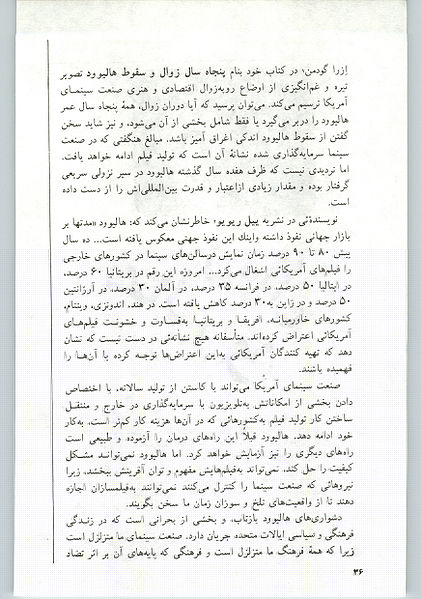 ازرا گودمن، در کتاب خود بنام پنجاه سال زوال و سقوط هالیوود تصویر
تیره و غم‌انگیزی از اوضاع روبه‌زوال اقتصادی و هنری صنعت سینمای
آمریکا ترسیم می‌کند. می‌توان پرسید که آیا دوران زوال، همهٔ پنجاه سال عمر
هالیوود را دربر می‌گیرد یا فقط شامل بخشی از آن می‌شود، و نیز شاید سخن
گفتن از سقوط هالیوود اندکی اغراق آمیز باشد. مبالغ هنگفتی که در صنعت
سینما سرمایه‌گذاری شده نشانهٔ آن است که تولید فیلم ادامه خواهد یافت.
اما تردیدی نیست که ظرف هفده سال گذشته هالیوود در سیر نزولی سریعی
گرفتار بوده و مقدار زیادی ازاعتبار و قدرت بین‌المللی‌اش را از دست داده
است.
نویسنده‌ئی در نشریه پیپل ریویو، خاطرنشان می‌کند که: هالیوود «مدتها بر
بازار جهانی نفوذ داشته واینك این نفوذ جهتی معکوس یافته است... ده سال
پیش ۸۰ تا ۹۰ درصد زمان نمایش درسالن‌های سینما در کشورهای خارجی
را فیلم‌های آمریکائی اشغال می‌کرد... امروزه این رقم در بریتانیا ۶۰ درصد،
در ایتالیا ۵۰ درصد، در فرانسه ۳۵ درصد، در آلمان ۳۰ درصد، در آرژانتین
۵۰ درصد و در ژاپن به۳۰ درصد کاهش یافته است. در هند، اندونزی، ویتنام،
کشورهای خاورمیانه، آفریقا و بریتانیا به‌قساوت و خشونت فیلم‌های
آمریکائی اعتراض کرده‌اند. متأسفانه هیچ نشانه‌ئی در دست نیست که نشان
دهد که تهیه کنندگان آمریکائی به‌این اعتراض‌ها توجه کرده یا آن‌ها را
فهمیده باشند.
صنعت سینمای آمریکا می‌تواند با کاستن از تولید سالانه، با اختصاص
دادن بخشی از امکاناتش به‌تلویزیون با سرمایه‌گذاری در خارج و منتقل
ساختن کار تولید فیلم به‌کشورهائی که در آن‌ها هزینه کار کم‌تر است، به‌کار
خود ادامه دهد. هالیوود قبلاً این راه‌های درمان را آزموده و طبیعی است
راه‌های دیگری را نیز آزمایش خواهد کرد. اما هالیوود نمی‌تواند مشکل
کیفیت را حل کند، نمی‌تواند به‌فیلم‌هایش مفهوم و توان آفرینش ببخشد، زیرا
نیروهائی که صنعت سینما را کنترل می‌کنند نمی‌توانند به‌فیلمسازان اجازه
دهند تا از واقعیت‌های تلخ و سوزان زمان ما سخن بگویند.
دشواری‌های هالیوود بازتاب، و بخشی از بحرانی است که در زندگی
فرهنگی و سیاسی ایالات متحده جریان دارد. صنعت سینمای ما متزلزل است
زیرا که همهٔ فرهنگ ما متزلزل است و فرهنگی که پایه‌های آن بر اثر تضاد
۳۶